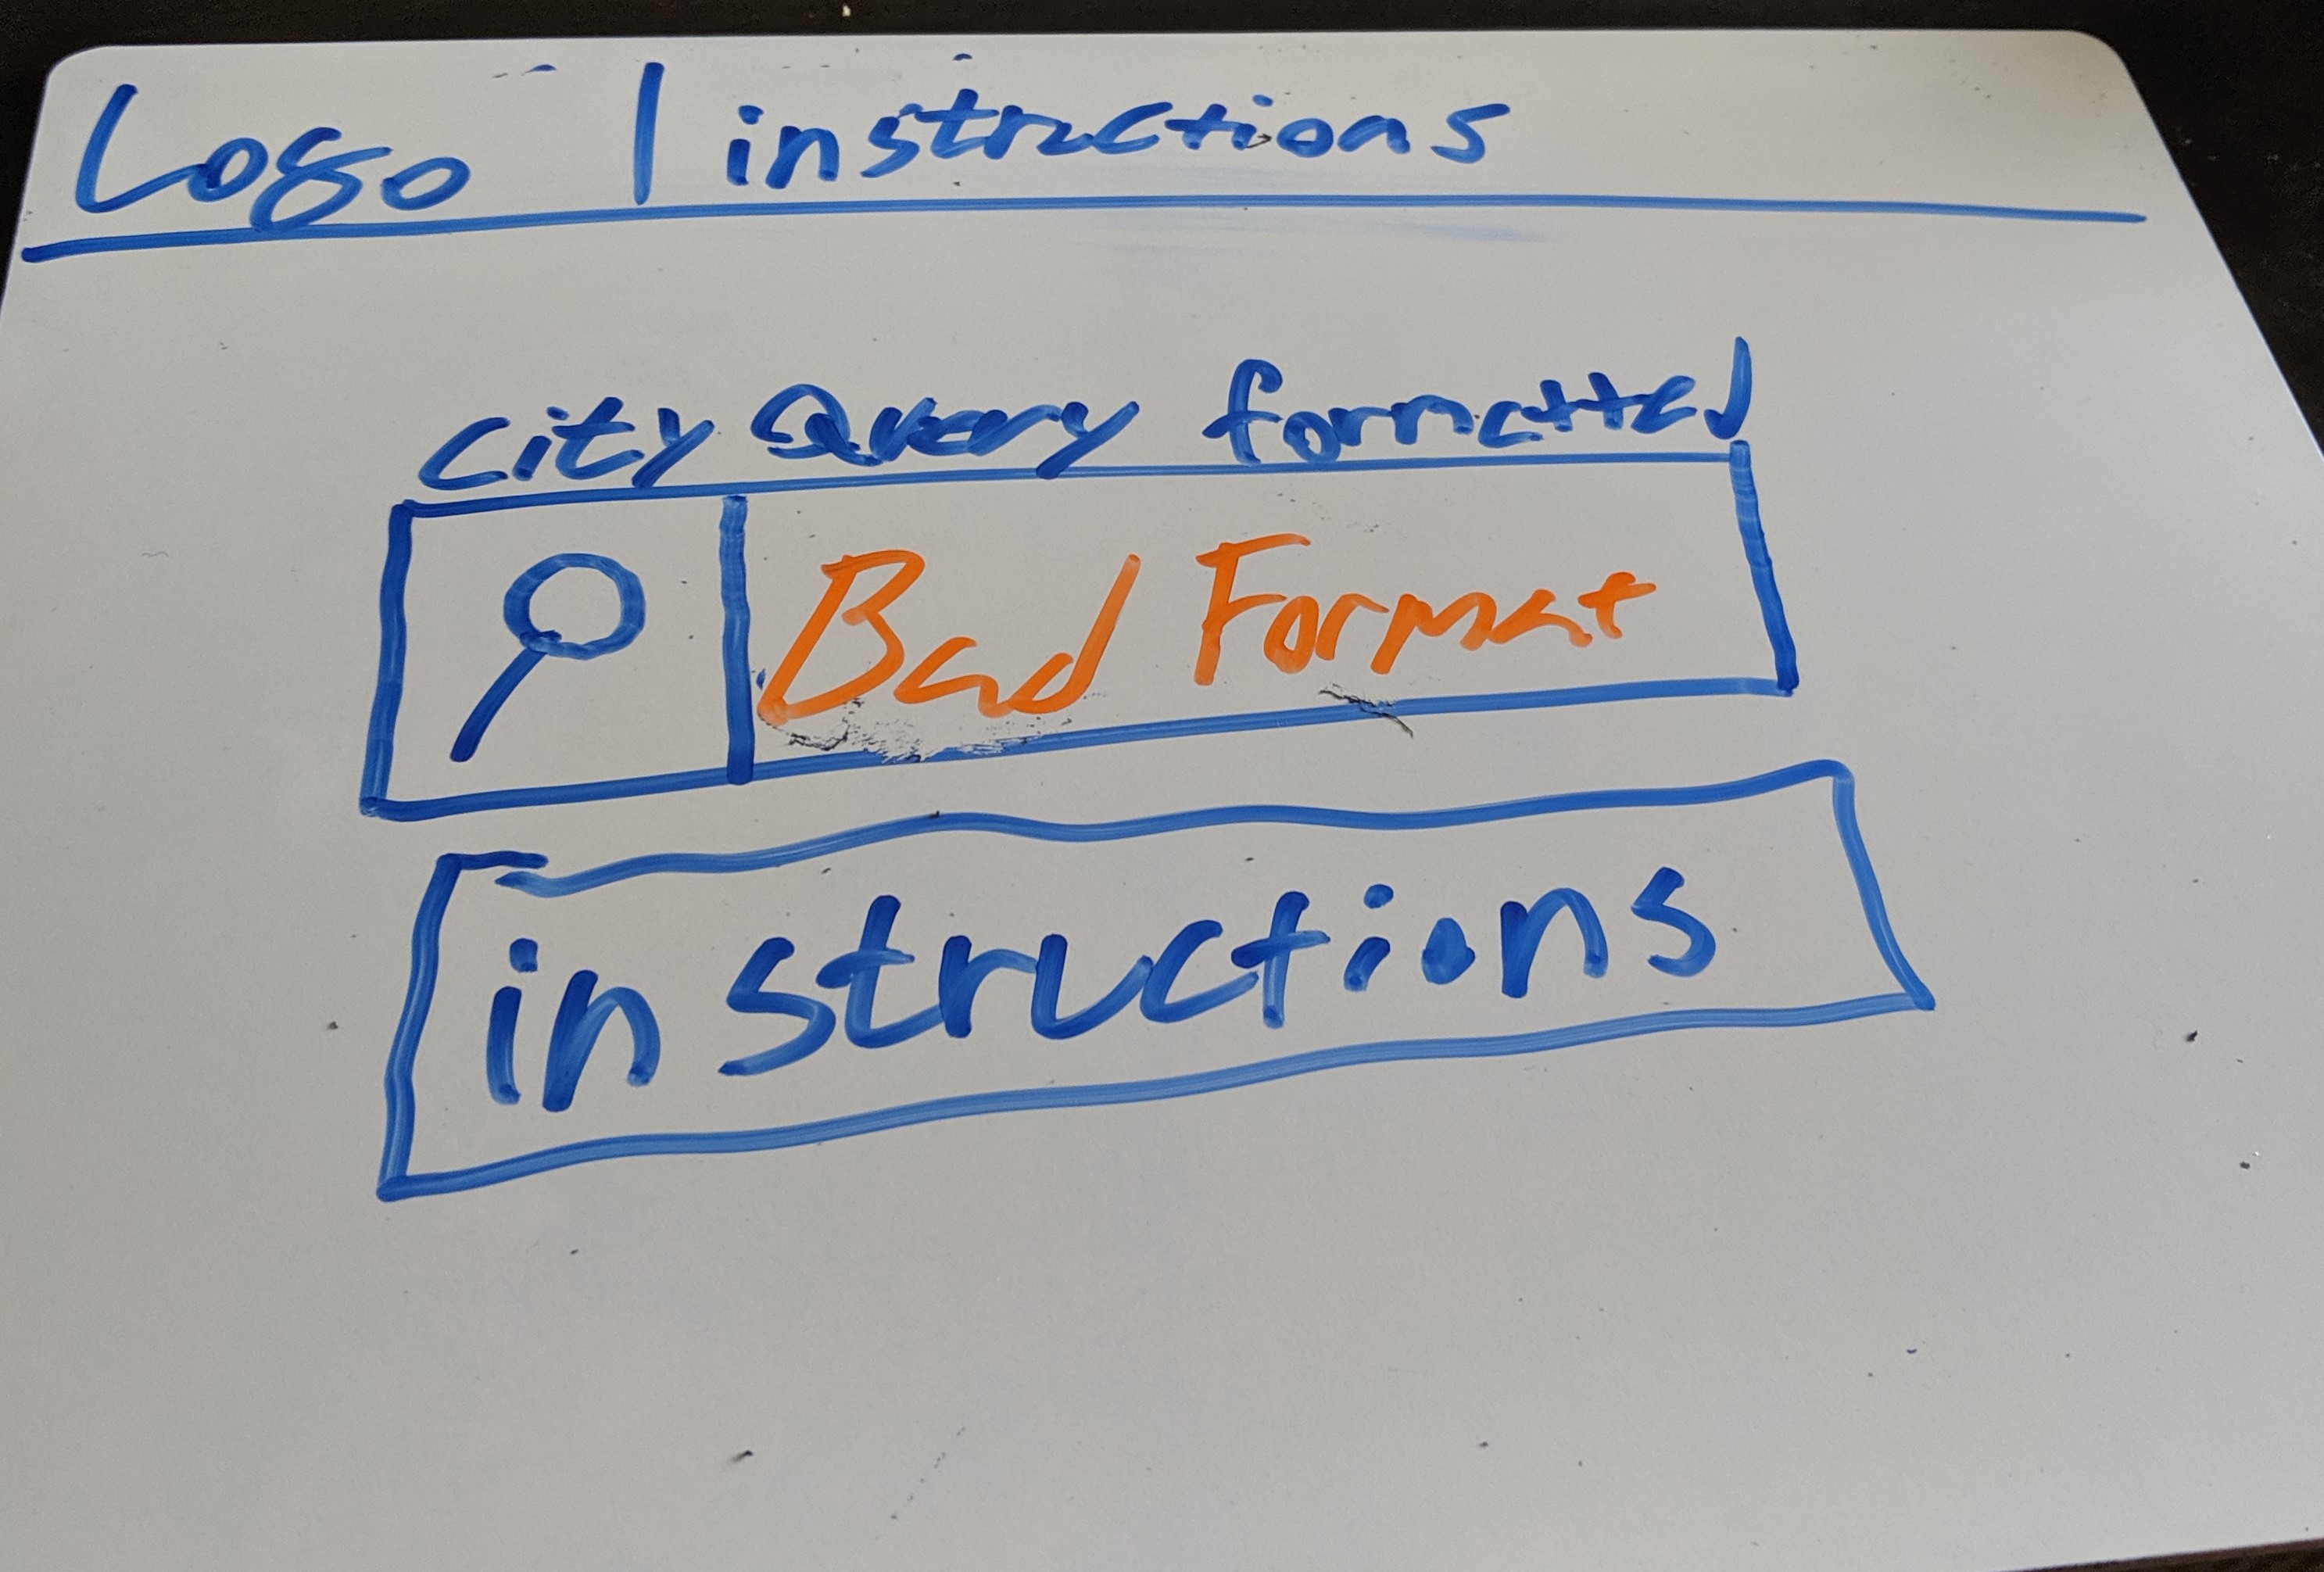 Logo | instructions
city Query formatted
Bad Format
instructions